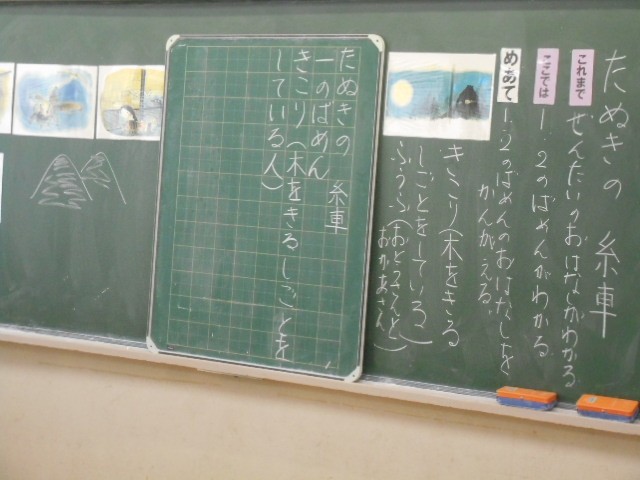 たぬきの 糸車
これまで
ぜんたいのおはなしがわかる
ここでは
1、2のばめんがわかる
めあて
1、2のばめんのおはなしを
かんがえる。
きこり(木をきる
しごとをしている)
ふうふ(おとうさんと
おかあさん)
たぬきの 糸車
一のばめん
きこり(木をきるしごとを
している人)